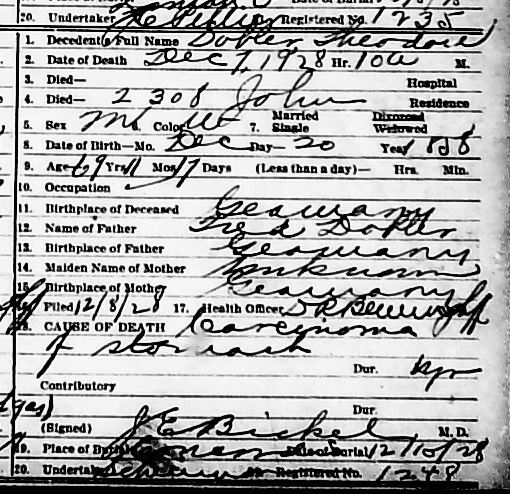 20. Undertaker Registered No. 1235
1. Decedent's Full Name Dobler Theodore
2. Date of Death Dec 7, 1928 Hr. 10a M.
3. Died— Hospital
4. Died— 2308 John Residence
5. Sex M 6. Color W 7. Married Single Divorced Widowed
8. Date of Birth—Mo. Dec Day— 20 Year 1858
9. Age 69 Yrs 11 Mos 17 Days (Less than a day)— Hrs. Min.
10. Occupation
11. Birthplace of Deceased Germany
12. Name of Father Fred Dobler
13. Birthplace of Father Germany
14. Maiden Name of Mother Unknown
15. Birthplace of Mother Germany
Filed 12/8/28 17. Health Officer
18. CAUSE OF DEATH Carcinoma
of stomach
Dur. 1 yr
Contributory
Dur.
(Signed) J E Bickel M. D.
19. Place of Burial Date of Burial 12/10/28
20. Undertaker Registered No. 1248